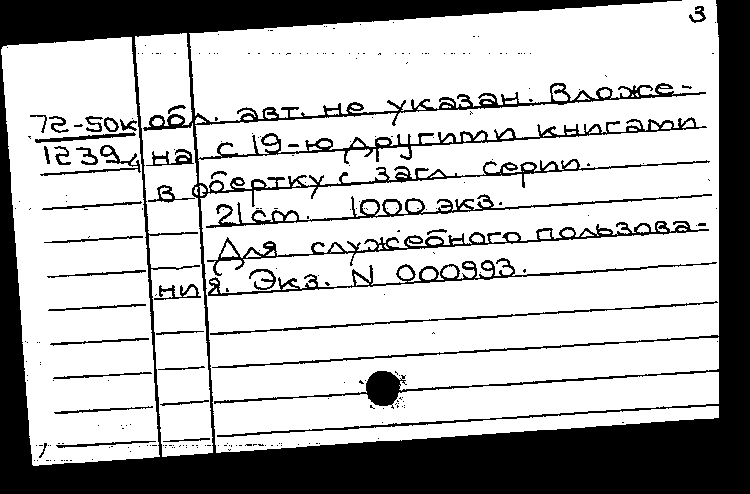 3
72-50к обл. авт. не указан. Вложе-
1239 на с 19-ю другими книгами
в обертку с загл. серии.
21 ст. 1000 экз.
Для служебного пользова-
ния. Экз. N 000993.